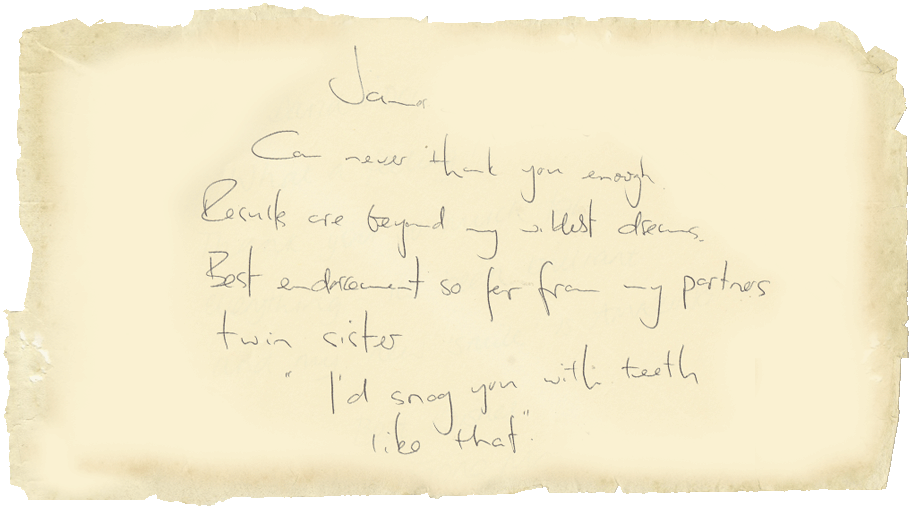 Can never thank you enough.
Results are beyond my wildest dreams.
Best endorsement so far from my partners
twin sister
" I'd snog you with teeth
like that".